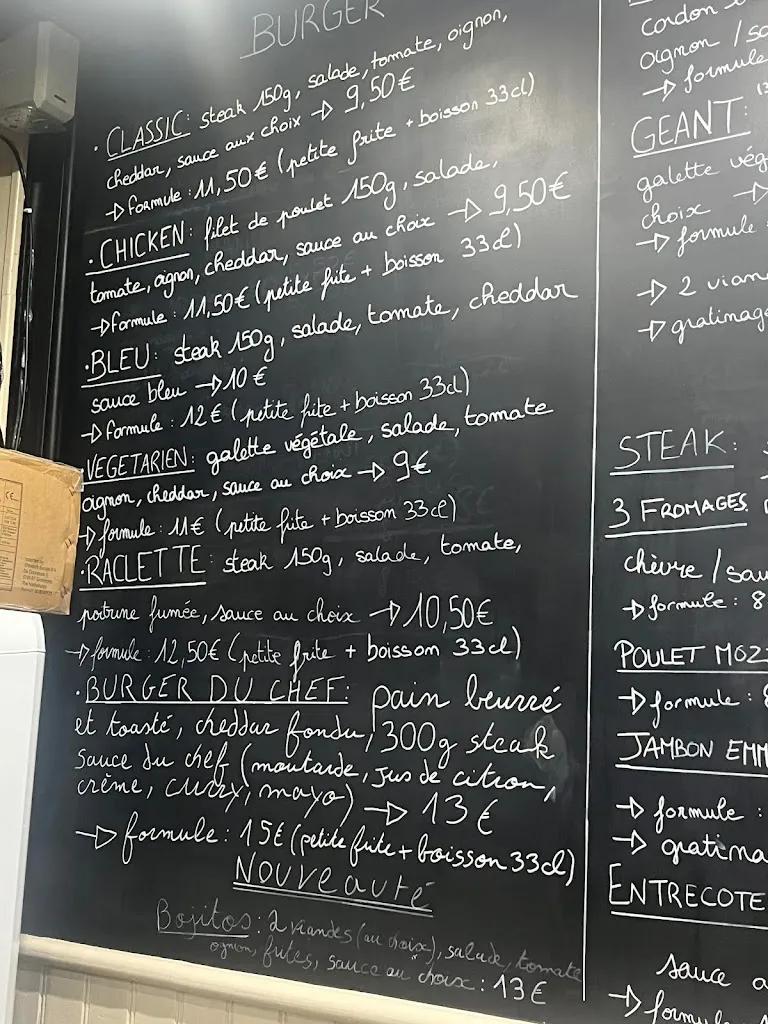 BURGER
· CLASSIC: steak 150g, salade, tomate, oignon,
cheddar, sauce aux choix → 9,50€
→ formule : 11,50€ (petite frite + boisson 33cl)
· CHICKEN: filet de poulet 150g, salade,
tomate, oignon, cheddar, sauce au choix → 9,50€
→ formule : 11,50€ (petite frite + boisson 33cl)
· BLEU: steak 150g, salade, tomate, cheddar
sauce bleu → 10€
→ formule : 12€ (petite frite + boisson 33cl)
VEGETARIEN: galette végétale, salade, tomate
oignon, cheddar, sauce au choix → 9€
→ formule : 11€ (petite frite + boisson 33cl)
· RACLETTE: steak 150g, salade, tomate,
poitrine fumée, sauce au choix → 10,50€
→ formule : 12,50€ (petite frite + boisson 33cl)
· BURGER DU CHEF: pain beurré
et toasté, cheddar fondu, 300g steak
sauce du chef (moutarde, jus de citron,
crème, curry, mayo) → 13€
→ formule : 15€ (petite frite + boisson 33cl)
Nouveauté
Bojitos: 2 viandes (au choix), salade, tomate
ognon, frites, sauce au choix : 13€
cordon
oignon / sa
→ formule
GEANT:
galette vég
choix →
→ formule
→ 2 vian
→ gratinag
STEAK:
3 FROMAGES
chèvre / sau
→ formule : 8
POULET MOZZ
→ formule : 8
JAMBON EMM
→ formule :
→ gratina
ENTRECOTE
sauce a
→ formul